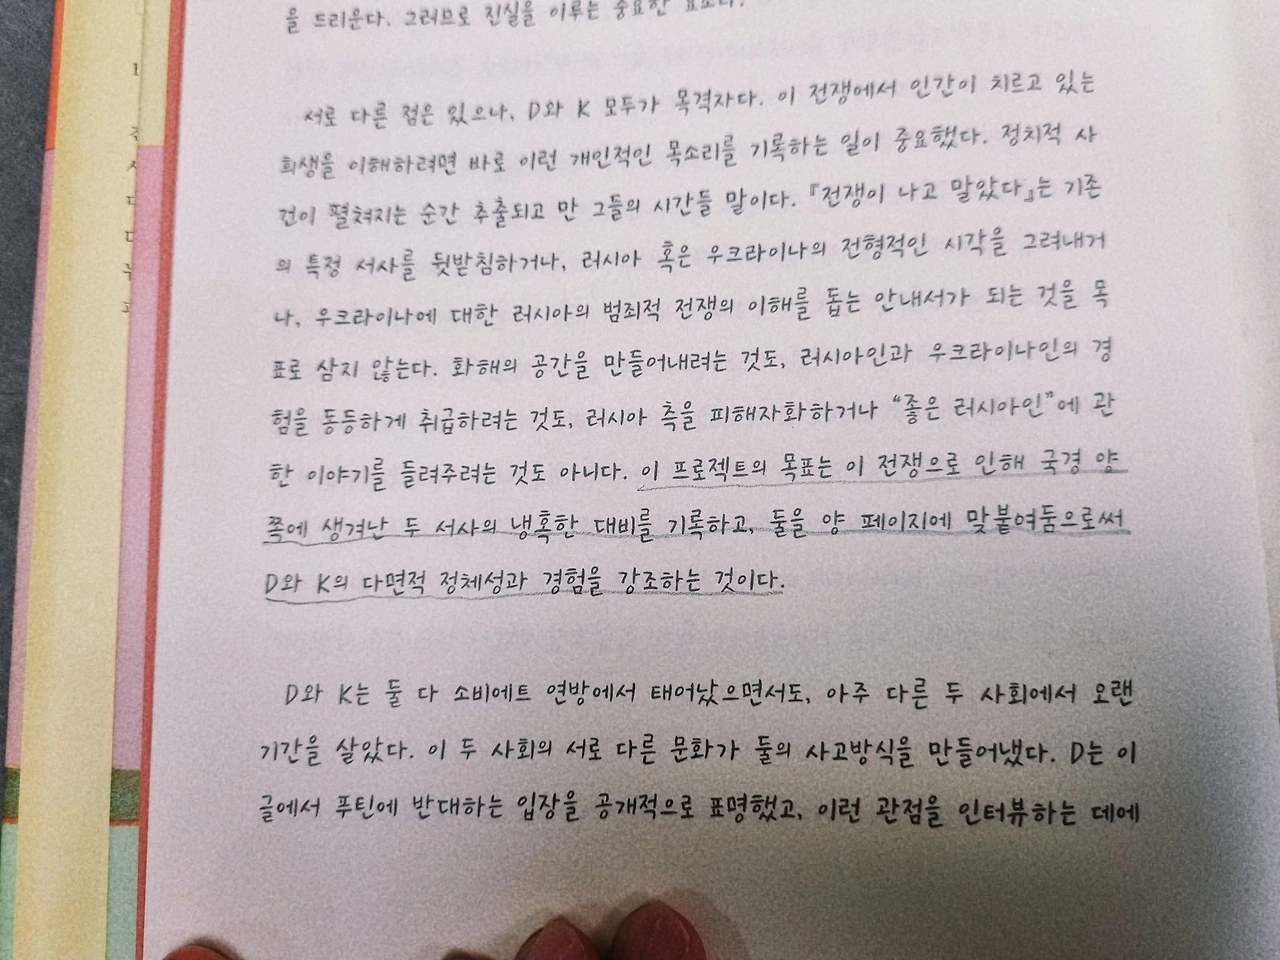 을 드리운다. 그러므로 진실을 이루는 중요한 요소다.
서로 다른 점은 있으나, D와 K 모두가 목격자다. 이 전쟁에서 인간이 치르고 있는
희생을 이해하려면 바로 이런 개인적인 목소리를 기록하는 일이 중요했다. 정치적 사
건이 펼쳐지는 순간 추출되고 만 그들의 시간들 말이다. 『전쟁이 나고 말았다』는 기존
의 특정 서사를 뒷받침하거나, 러시아 혹은 우크라이나의 전형적인 시각을 그려내거
나, 우크라이나에 대한 러시아의 범죄적 전쟁의 이해를 돕는 안내서가 되는 것을 목
표로 삼지 않는다. 화해의 공간을 만들어내려는 것도, 러시아인과 우크라이나인의 경
험을 동등하게 취급하려는 것도, 러시아 측을 피해자화하거나 “좋은 러시아인”에 관
한 이야기를 들려주려는 것도 아니다. 이 프로젝트의 목표는 이 전쟁으로 인해 국경 양
쪽에 생겨난 두 서사의 냉혹한 대비를 기록하고, 둘을 양 페이지에 맞붙여둠으로써
D와 K의 다면적 정체성과 경험을 강조하는 것이다.
D와 K는 둘 다 소비에트 연방에서 태어났으면서도, 아주 다른 두 사회에서 오랜
기간을 살았다. 이 두 사회의 서로 다른 문화가 둘의 사고방식을 만들어냈다. D는 이
글에서 푸틴에 반대하는 입장을 공개적으로 표명했고, 이런 관점을 인터뷰하는 데에